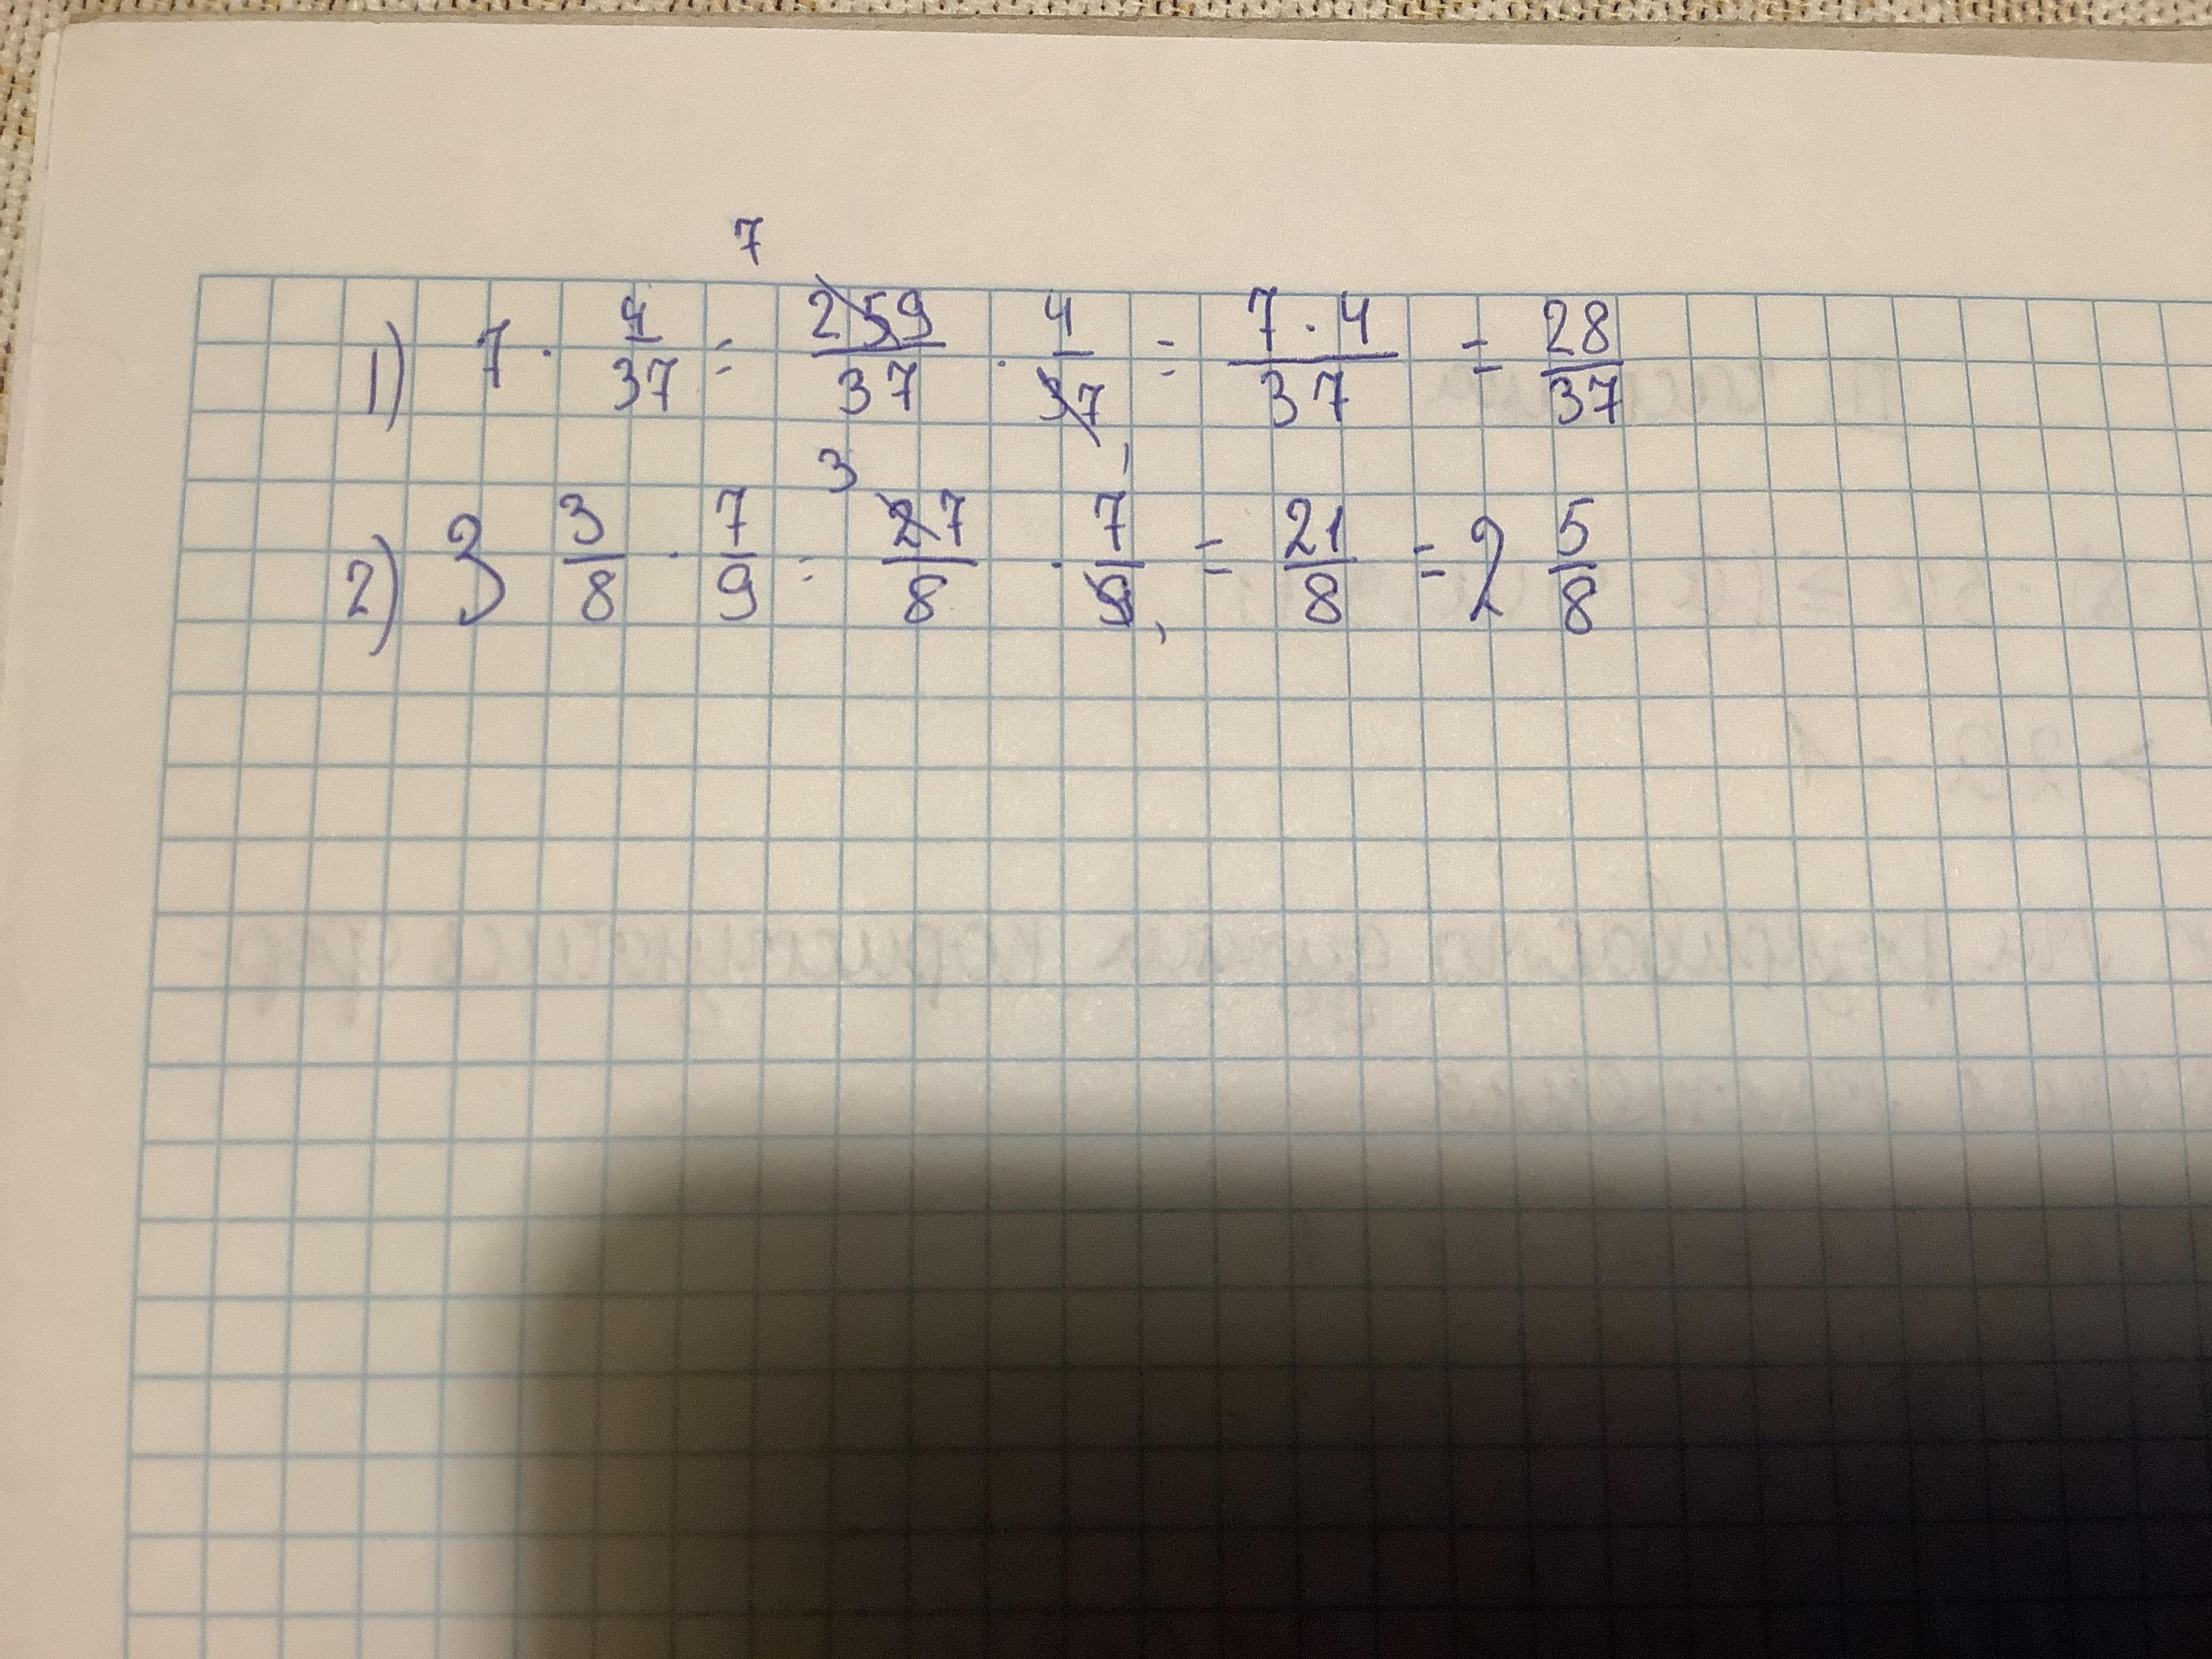 1) 7 · 4/37 = 7 259/37 · 4/37 1 = 7·4/37 = 28/37
2) 3 3/8 · 7/9 = 3 27/8 · 7/9 1 = 21/8 = 2 5/8